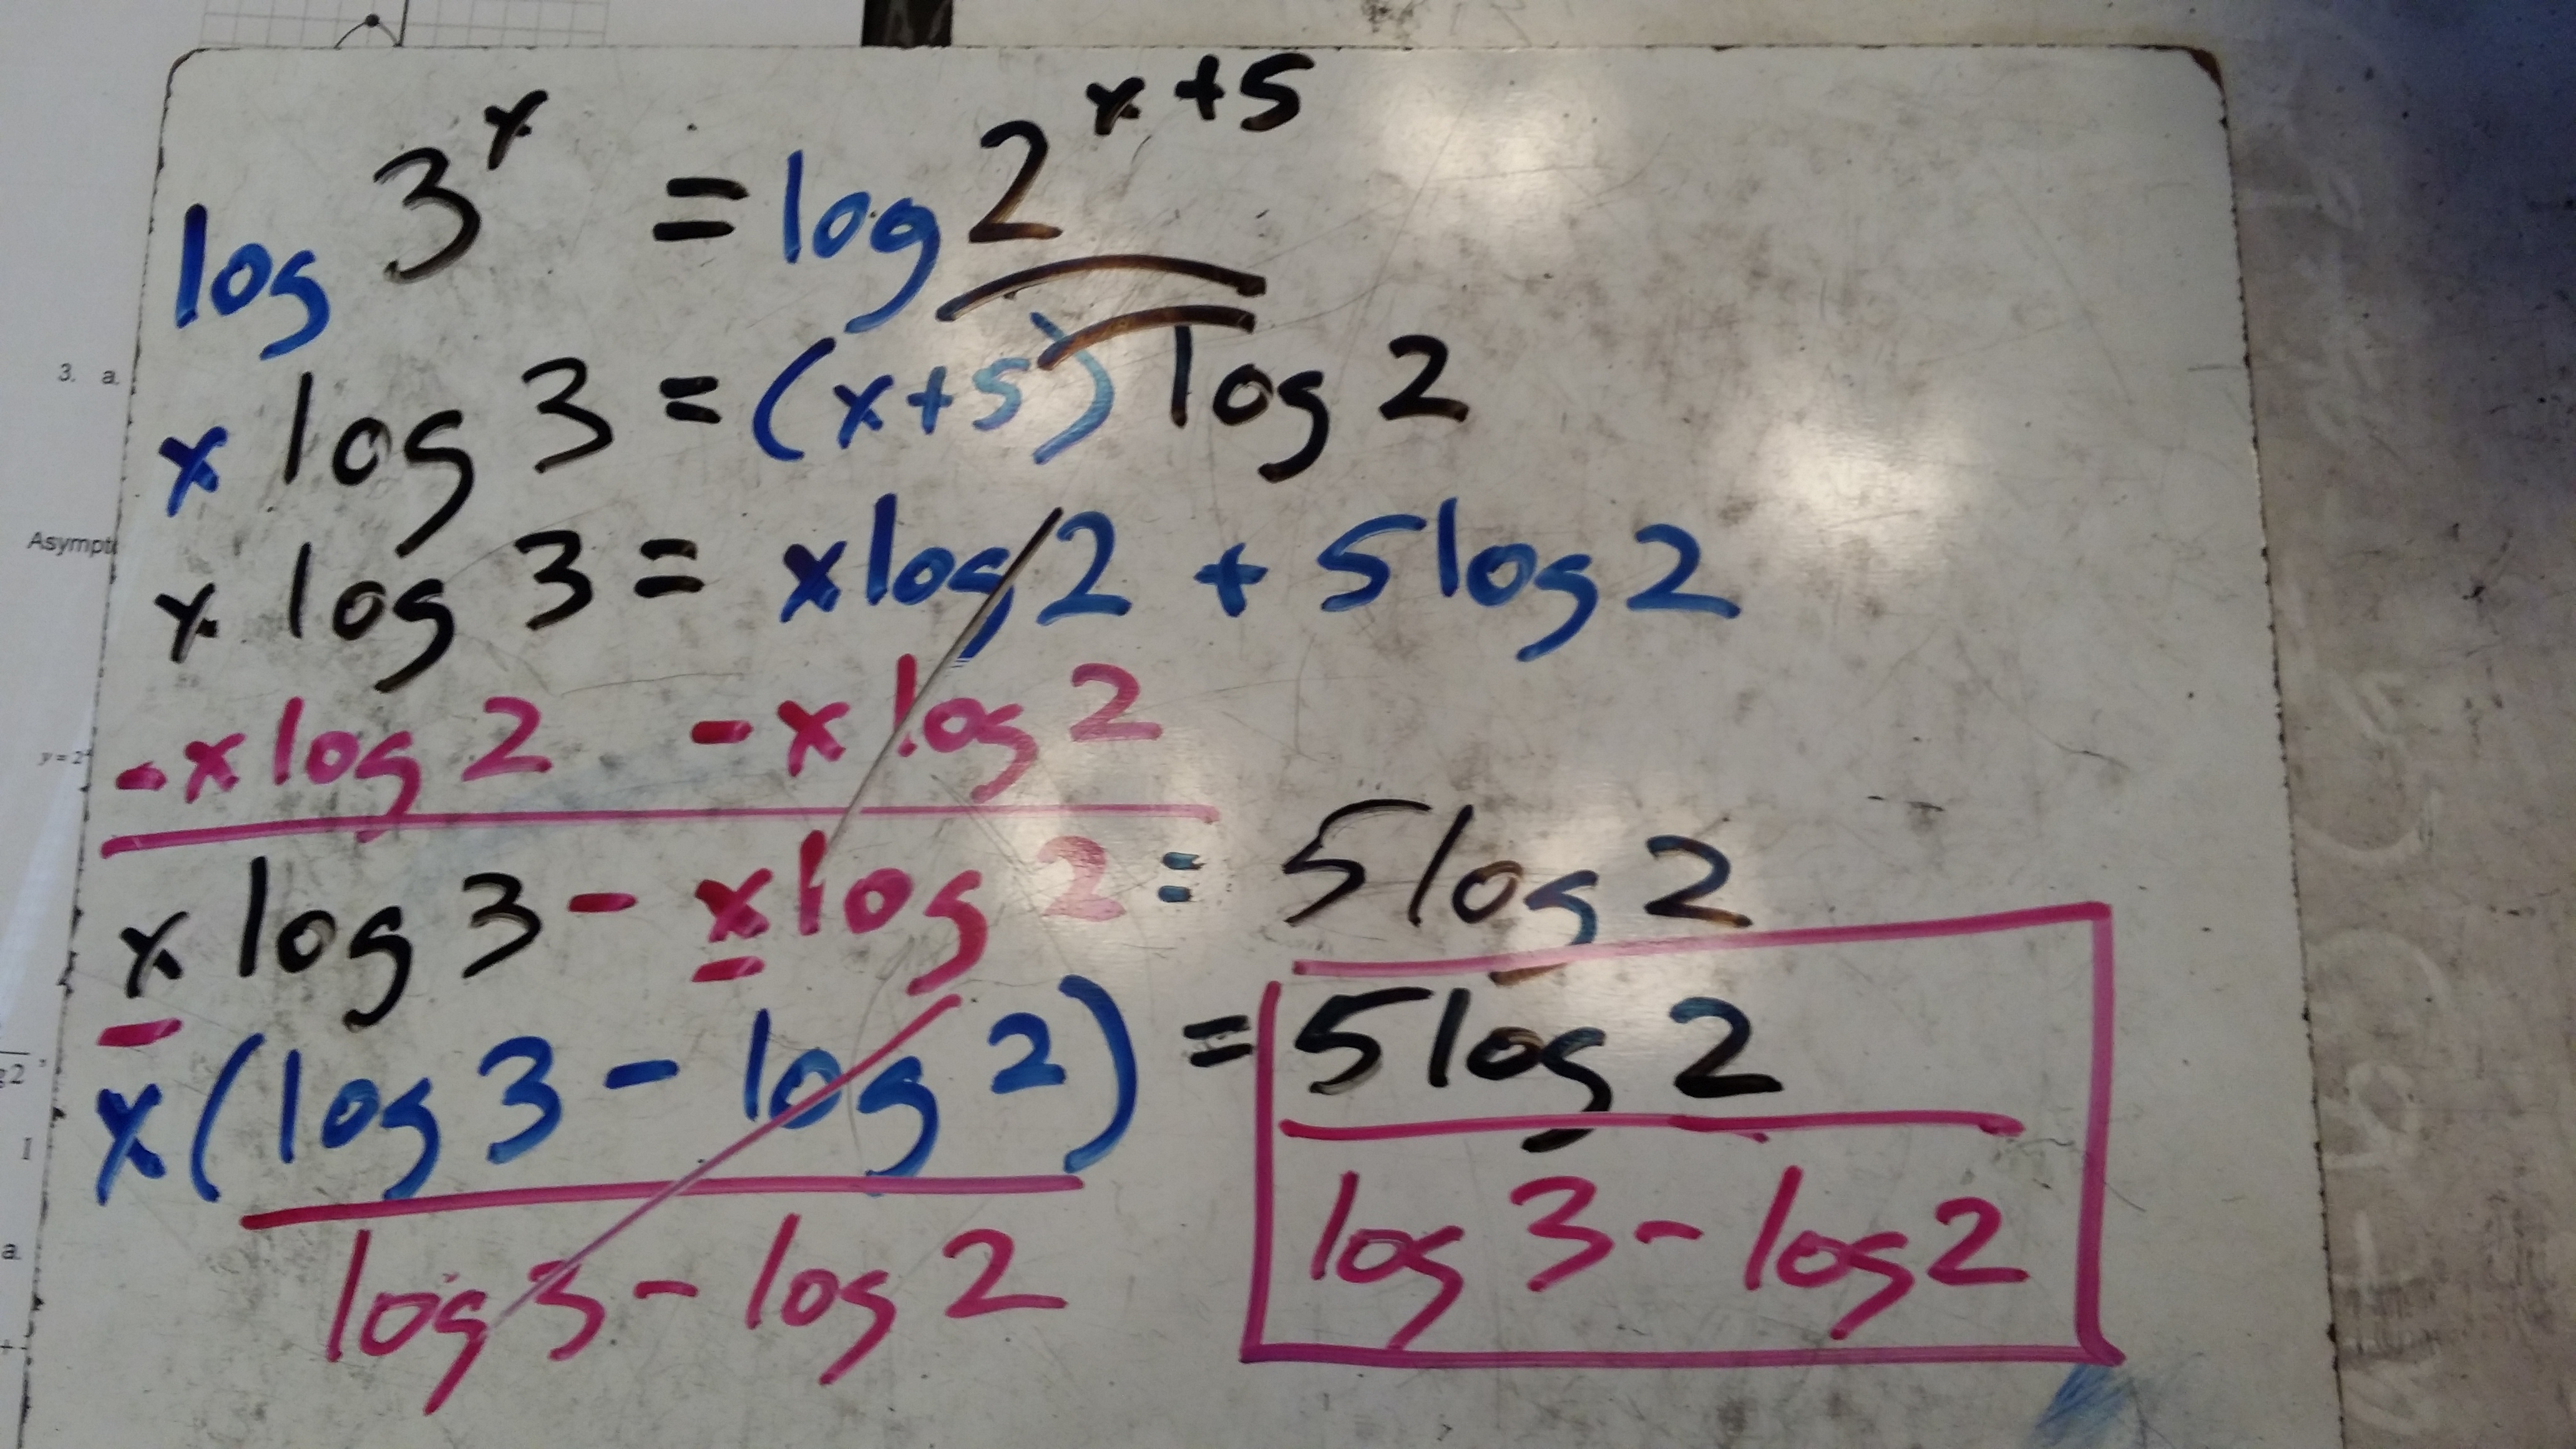 log 3^x = log 2^x+5
x log 3 = (x+5) log 2
x log 3 = x log 2 + 5 log 2
- x log 2 - x log 2
x log 3 - x log 2 = 5 log 2
x (log 3 - log 2) = 5 log 2
log 3 - log 2 log 3 - log 2
3. a.
y = 2
1
a.